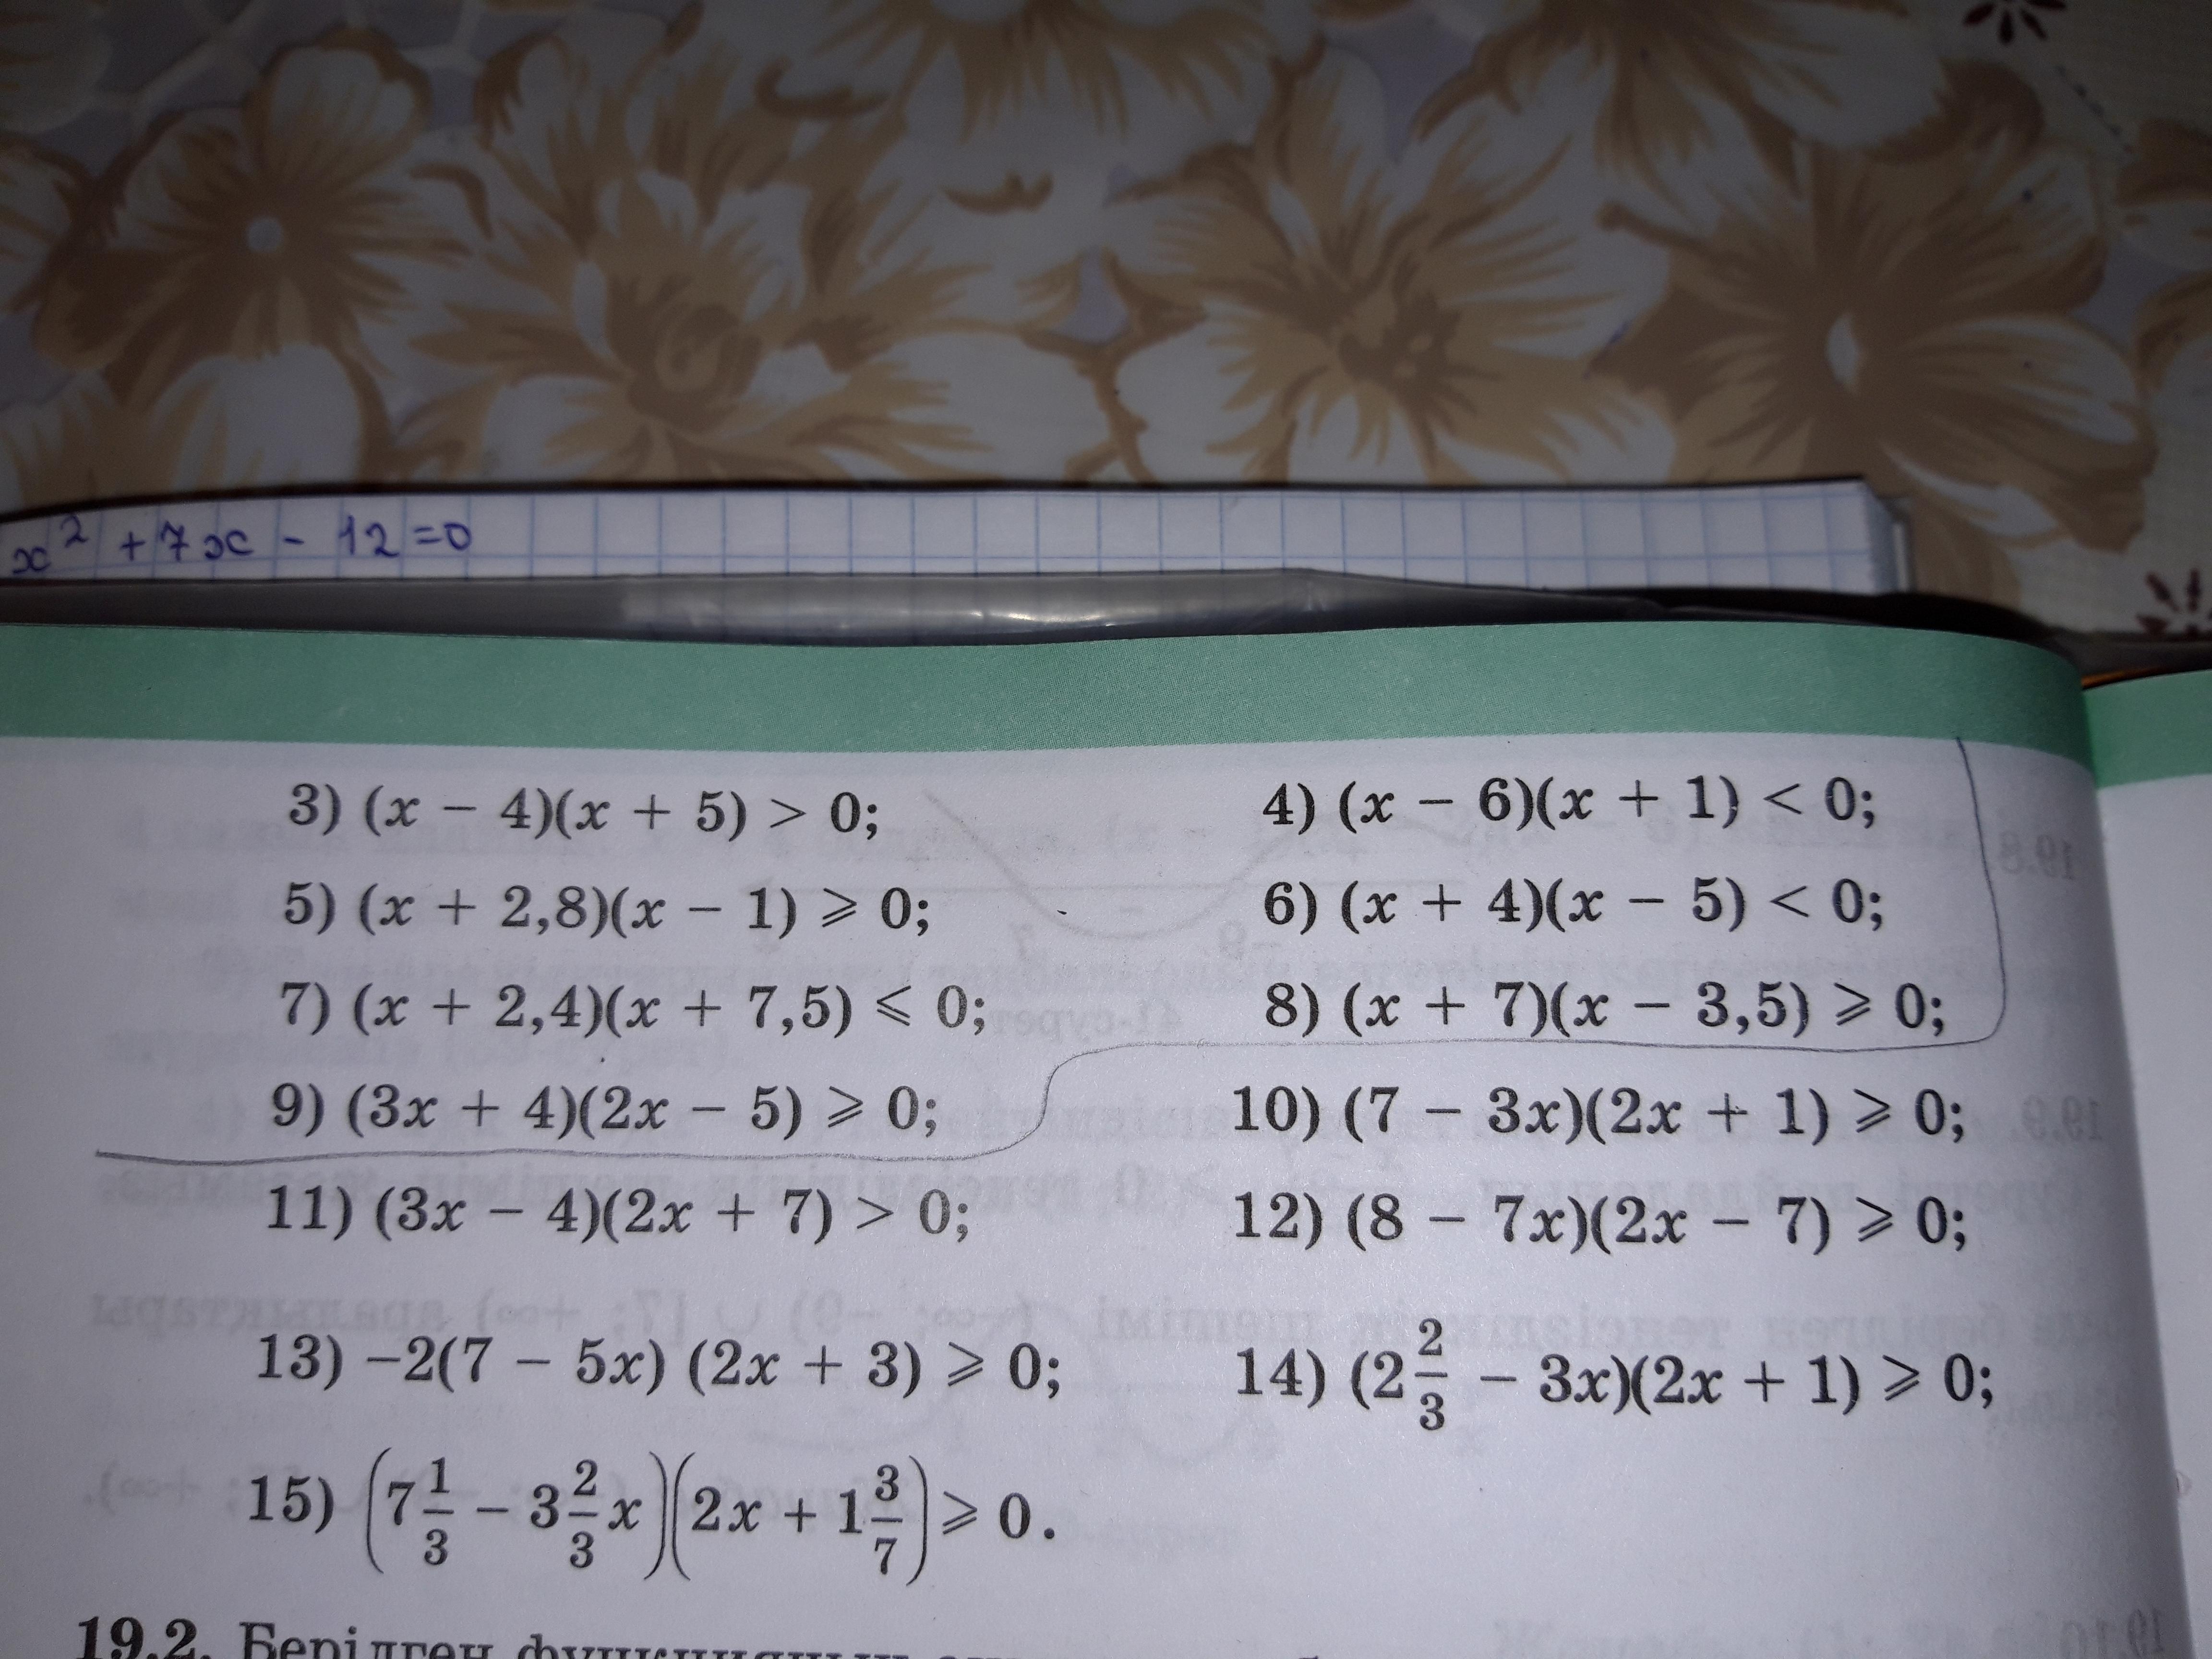 x² + 7x - 12 = 0
3) (x − 4)(x + 5) > 0;
4) (x − 6)(x + 1) < 0;
5) (x + 2,8)(x − 1) ⩾ 0;
6) (x + 4)(x − 5) < 0;
7) (x + 2,4)(x + 7,5) ⩽ 0;
8) (x + 7)(x − 3,5) ⩾ 0;
9) (3x + 4)(2x − 5) ⩾ 0;
10) (7 − 3x)(2x + 1) ⩾ 0;
11) (3x − 4)(2x + 7) > 0;
12) (8 − 7x)(2x − 7) ⩾ 0;
13) −2(7 − 5x) (2x + 3) ⩾ 0;
14) (2 2/3 − 3x)(2x + 1) ⩾ 0;
15) (7 1/3 − 3 2/3 x)(2x + 1 3/7) ⩾ 0.
19.2. Берілген функцияның